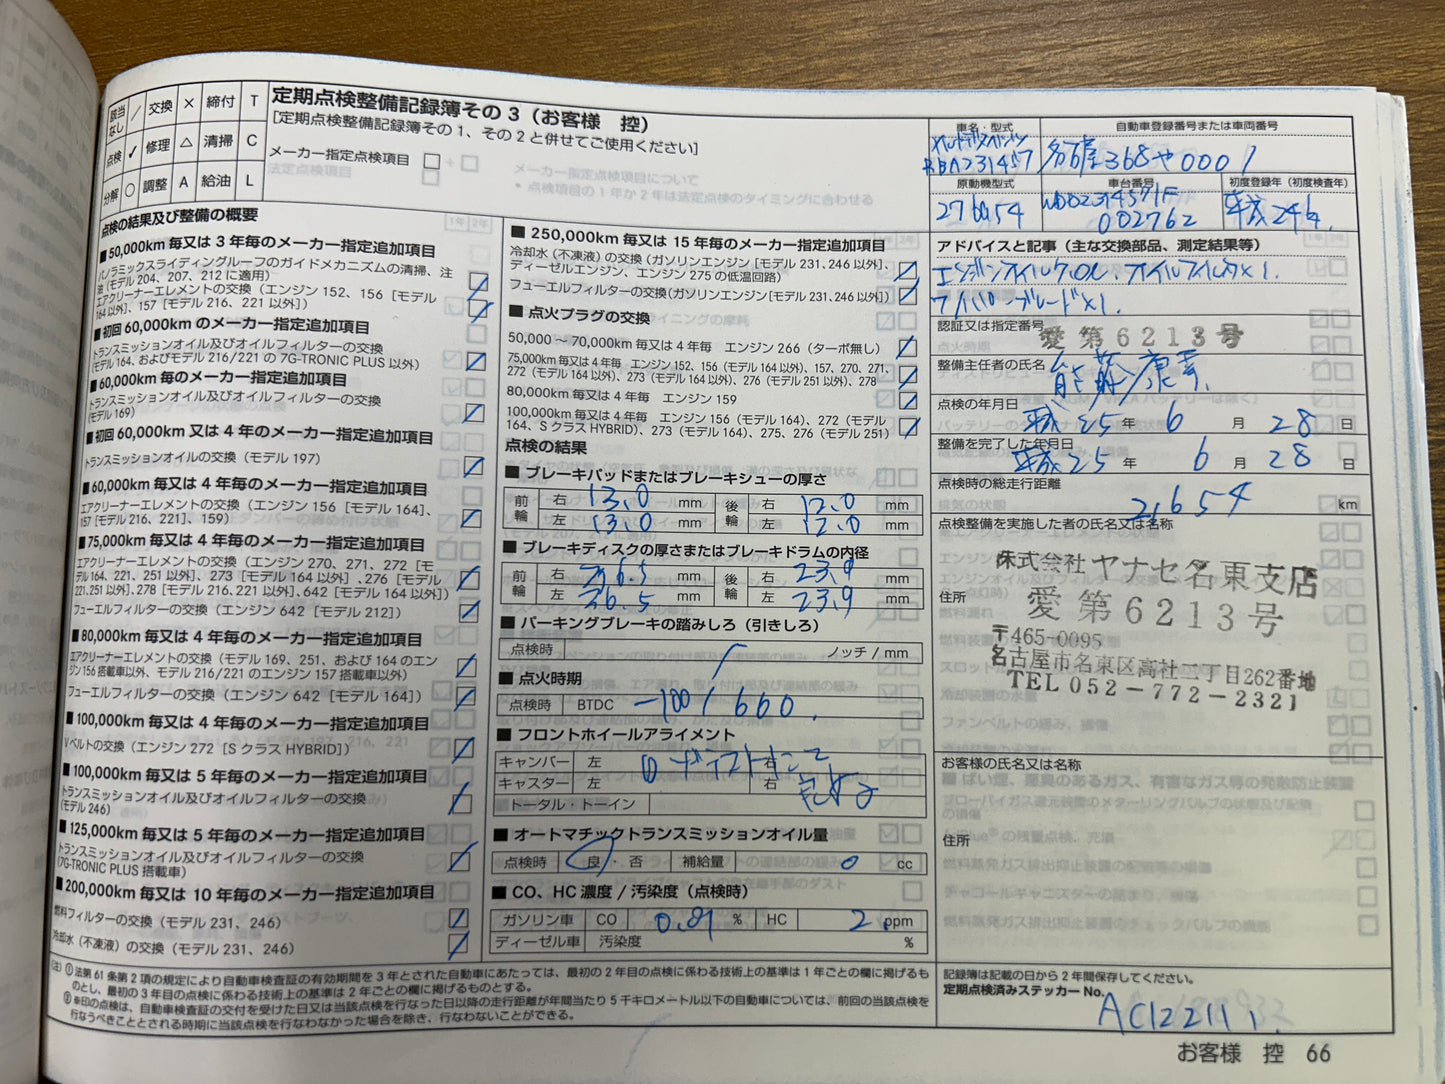 該当なし ／ 交換 × 締付 T
点検 ✓ 修理 △ 清掃 C
分解 ○ 調整 A 給油 L
定期点検整備記録簿その３（お客様　控）
［定期点検整備記録簿その１、その２と併せてご使用ください］
メーカー指定点検項目 □ + □
法定点検項目 □
メーカー指定点検項目について
* 点検項目の１年か２年は法定点検のタイミングに合わせる
点検の結果及び整備の概要
■ 50,000km 毎又は３年毎のメーカー指定追加項目
パノラミックスライディングルーフのガイドメカニズムの清掃、注
油（モデル 204、207、212 に適用）
エアクリーナーエレメントの交換（エンジン 152、156［モデル
164 以外］、157［モデル 216、221 以外］）
■ 初回 60,000km のメーカー指定追加項目
トランスミッションオイル及びオイルフィルターの交換
（モデル 164、およびモデル 216/221 の 7G-TRONIC PLUS 以外）
■ 60,000km 毎のメーカー指定追加項目
トランスミッションオイル及びオイルフィルターの交換
（モデル 169）
■ 初回 60,000km 又は４年毎のメーカー指定追加項目
トランスミッションオイルの交換（モデル 197）
■ 60,000km 毎又は４年毎のメーカー指定追加項目
エアクリーナーエレメントの交換（エンジン 156［モデル 164］、
157［モデル 216、221］、159）
■ 75,000km 毎又は４年毎のメーカー指定追加項目
エアクリーナーエレメントの交換（エンジン 270、271、272［モ
デル 164、221、251 以外］、273［モデル 164 以外］、276［モデル
221、251 以外］、278［モデル 216、221 以外］、642［モデル 164 以外］）
フューエルフィルターの交換（エンジン 642［モデル 212］）
■ 80,000km 毎又は４年毎のメーカー指定追加項目
エアクリーナーエレメントの交換（モデル 169、251、および 164 のエン
ジン 156 搭載車以外、モデル 216/221 のエンジン 157 搭載車以外）
フューエルフィルターの交換（エンジン 642［モデル 164］）
■ 100,000km 毎又は４年毎のメーカー指定追加項目
Ｖベルトの交換（エンジン 272［S クラス HYBRID］）
■ 100,000km 毎又は５年毎のメーカー指定追加項目
トランスミッションオイル及びオイルフィルターの交換
（モデル 246）
■ 125,000km 毎又は５年毎のメーカー指定追加項目
トランスミッションオイル及びオイルフィルターの交換
（7G-TRONIC PLUS 搭載車）
■ 200,000km 毎又は 10 年毎のメーカー指定追加項目
燃料フィルターの交換（モデル 231、246）
冷却水（不凍液）の交換（モデル 231、246）
■ 250,000km 毎又は 15 年毎のメーカー指定追加項目
冷却水（不凍液）の交換（ガソリンエンジン［モデル 231、246 以外］、
ディーゼルエンジン、エンジン 275 の低温回路）
フューエルフィルターの交換（ガソリンエンジン［モデル 231、246 以外］）
■ 点火プラグの交換
50,000 ～ 70,000km 毎又は４年毎　エンジン 266（ターボ無し）
75,000km 毎又は４年毎　エンジン 152、156（モデル 164 以外）、157、270、271、
272（モデル 164 以外）、273（モデル 164 以外）、276（モデル 251 以外）、278
80,000km 毎又は４年毎　エンジン 159
100,000km 毎又は４年毎　エンジン 156（モデル 164）、272（モデル
164、S クラス HYBRID）、273（モデル 164）、275、276（モデル 251）
点検の結果
■ ブレーキパッドまたはブレーキシューの厚さ
前輪 右 13.0 mm 後輪 右 12.0 mm
左 13.0 mm 左 12.0 mm
■ ブレーキディスクの厚さまたはブレーキドラムの内径
前輪 右 36.5 mm 後輪 右 23.9 mm
左 36.5 mm 左 23.9 mm
■ パーキングブレーキの踏みしろ（引きしろ）
点検時 ノッチ / mm
■ 点火時期
点検時 BTDC -10° / 660.
■ フロントホイールアライメント
キャンバー 左 右
キャスター 左 右
ロードテストにて
良好
トータル・トーイン
■ オートマチックトランスミッションオイル量
点検時 良・否 補給量 0 cc
■ CO、HC 濃度 / 汚染度（点検時）
ガソリン車 CO 0.01 % HC 2 ppm
ディーゼル車 汚染度 %
車名・型式
メルセデスベンツ
RBA231457
自動車登録番号または車両番号
名古屋368や0001
原動機型式
276954
車台番号
WDD2314571F
002762
初度登録年（初度検査年）
平成24年
アドバイスと記事（主な交換部品、測定結果等）
エンジンオイル7.0L. オイルフィルタ×1.
ワイパーブレード×1.
認証又は指定番号
愛第6213号
整備主任者の氏名
点検の年月日
平成25年 6月 28日
整備を完了した年月日
平成25年 6月 28日
点検時の総走行距離
2,654 km
点検整備を実施した者の氏名又は名称
株式会社ヤナセ名東支店
住所
愛第6213号
〒465-0095
名古屋市名東区高社二丁目262番地
TEL 052-772-2321
お客様の氏名又は名称
住所
（注）① 法第 61 条第２項の規定により自動車検査証の有効期間を３年とされた自動車にあたっては、最初の２年目の点検に係わる技術上の基準は１年ごとの欄に掲げるも
のとし、最初の３年目の点検に係わる技術上の基準は２年ごとの欄に掲げるものとする。
② ※印の点検は、自動車検査証の交付を受けた日又は当該点検を行なった日以降の走行距離が年間当たり５千キロメートル以下の自動車については、前回の当該点検を
行なうべきこととされる時期に当該点検を行なわなかった場合を除き、行なわないことができる。
記録簿は記載の日から２年間保存してください。
定期点検済みステッカー No.
AC122111.
お客様　控　66